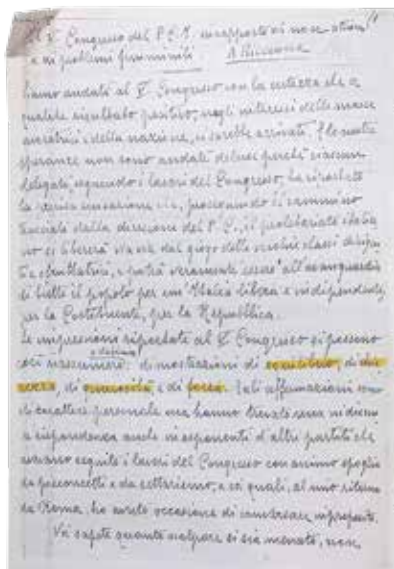 Il V° Congresso del P.C.I. in rapporto ai nove
e ai problemi femminili. A Piacenza
Siamo andati al V° Congresso con la certezza che a
qualche risultato positivo, negli interessi delle masse
lavoratrici e della nazione, si sarebbe arrivati. E le nostre
speranze non sono andate deluse perché ciascun
delegato, seguendo i lavori del Congresso, ha riportato
la sensazione che, proseguendo il cammino
tracciato dalla direzione del P.C., il proletariato italia
no si libererà dal giogo delle vecchie classi dirigen
ti e sfruttatrici, e potrà veramente essere all'avanguardia
di tutto il popolo per un'Italia libera e indipendente,
per la Costituente, per la Repubblica.
Le impressioni riportate al V° Congresso si possono
così riassumere: dimostrazioni di
di e di forza. Tali affermazioni sono
di carattere personale ma hanno trovato
rispondenza anche in esponenti d'altri partiti che
avevano seguito i lavori del Congresso con animo spoglio
da preconcetti e da settarismo, e coi quali, al mio ritorno
da Roma, ho avuto occasione di in proposito.
Voi sapete quanto scalpore si sia menato, non